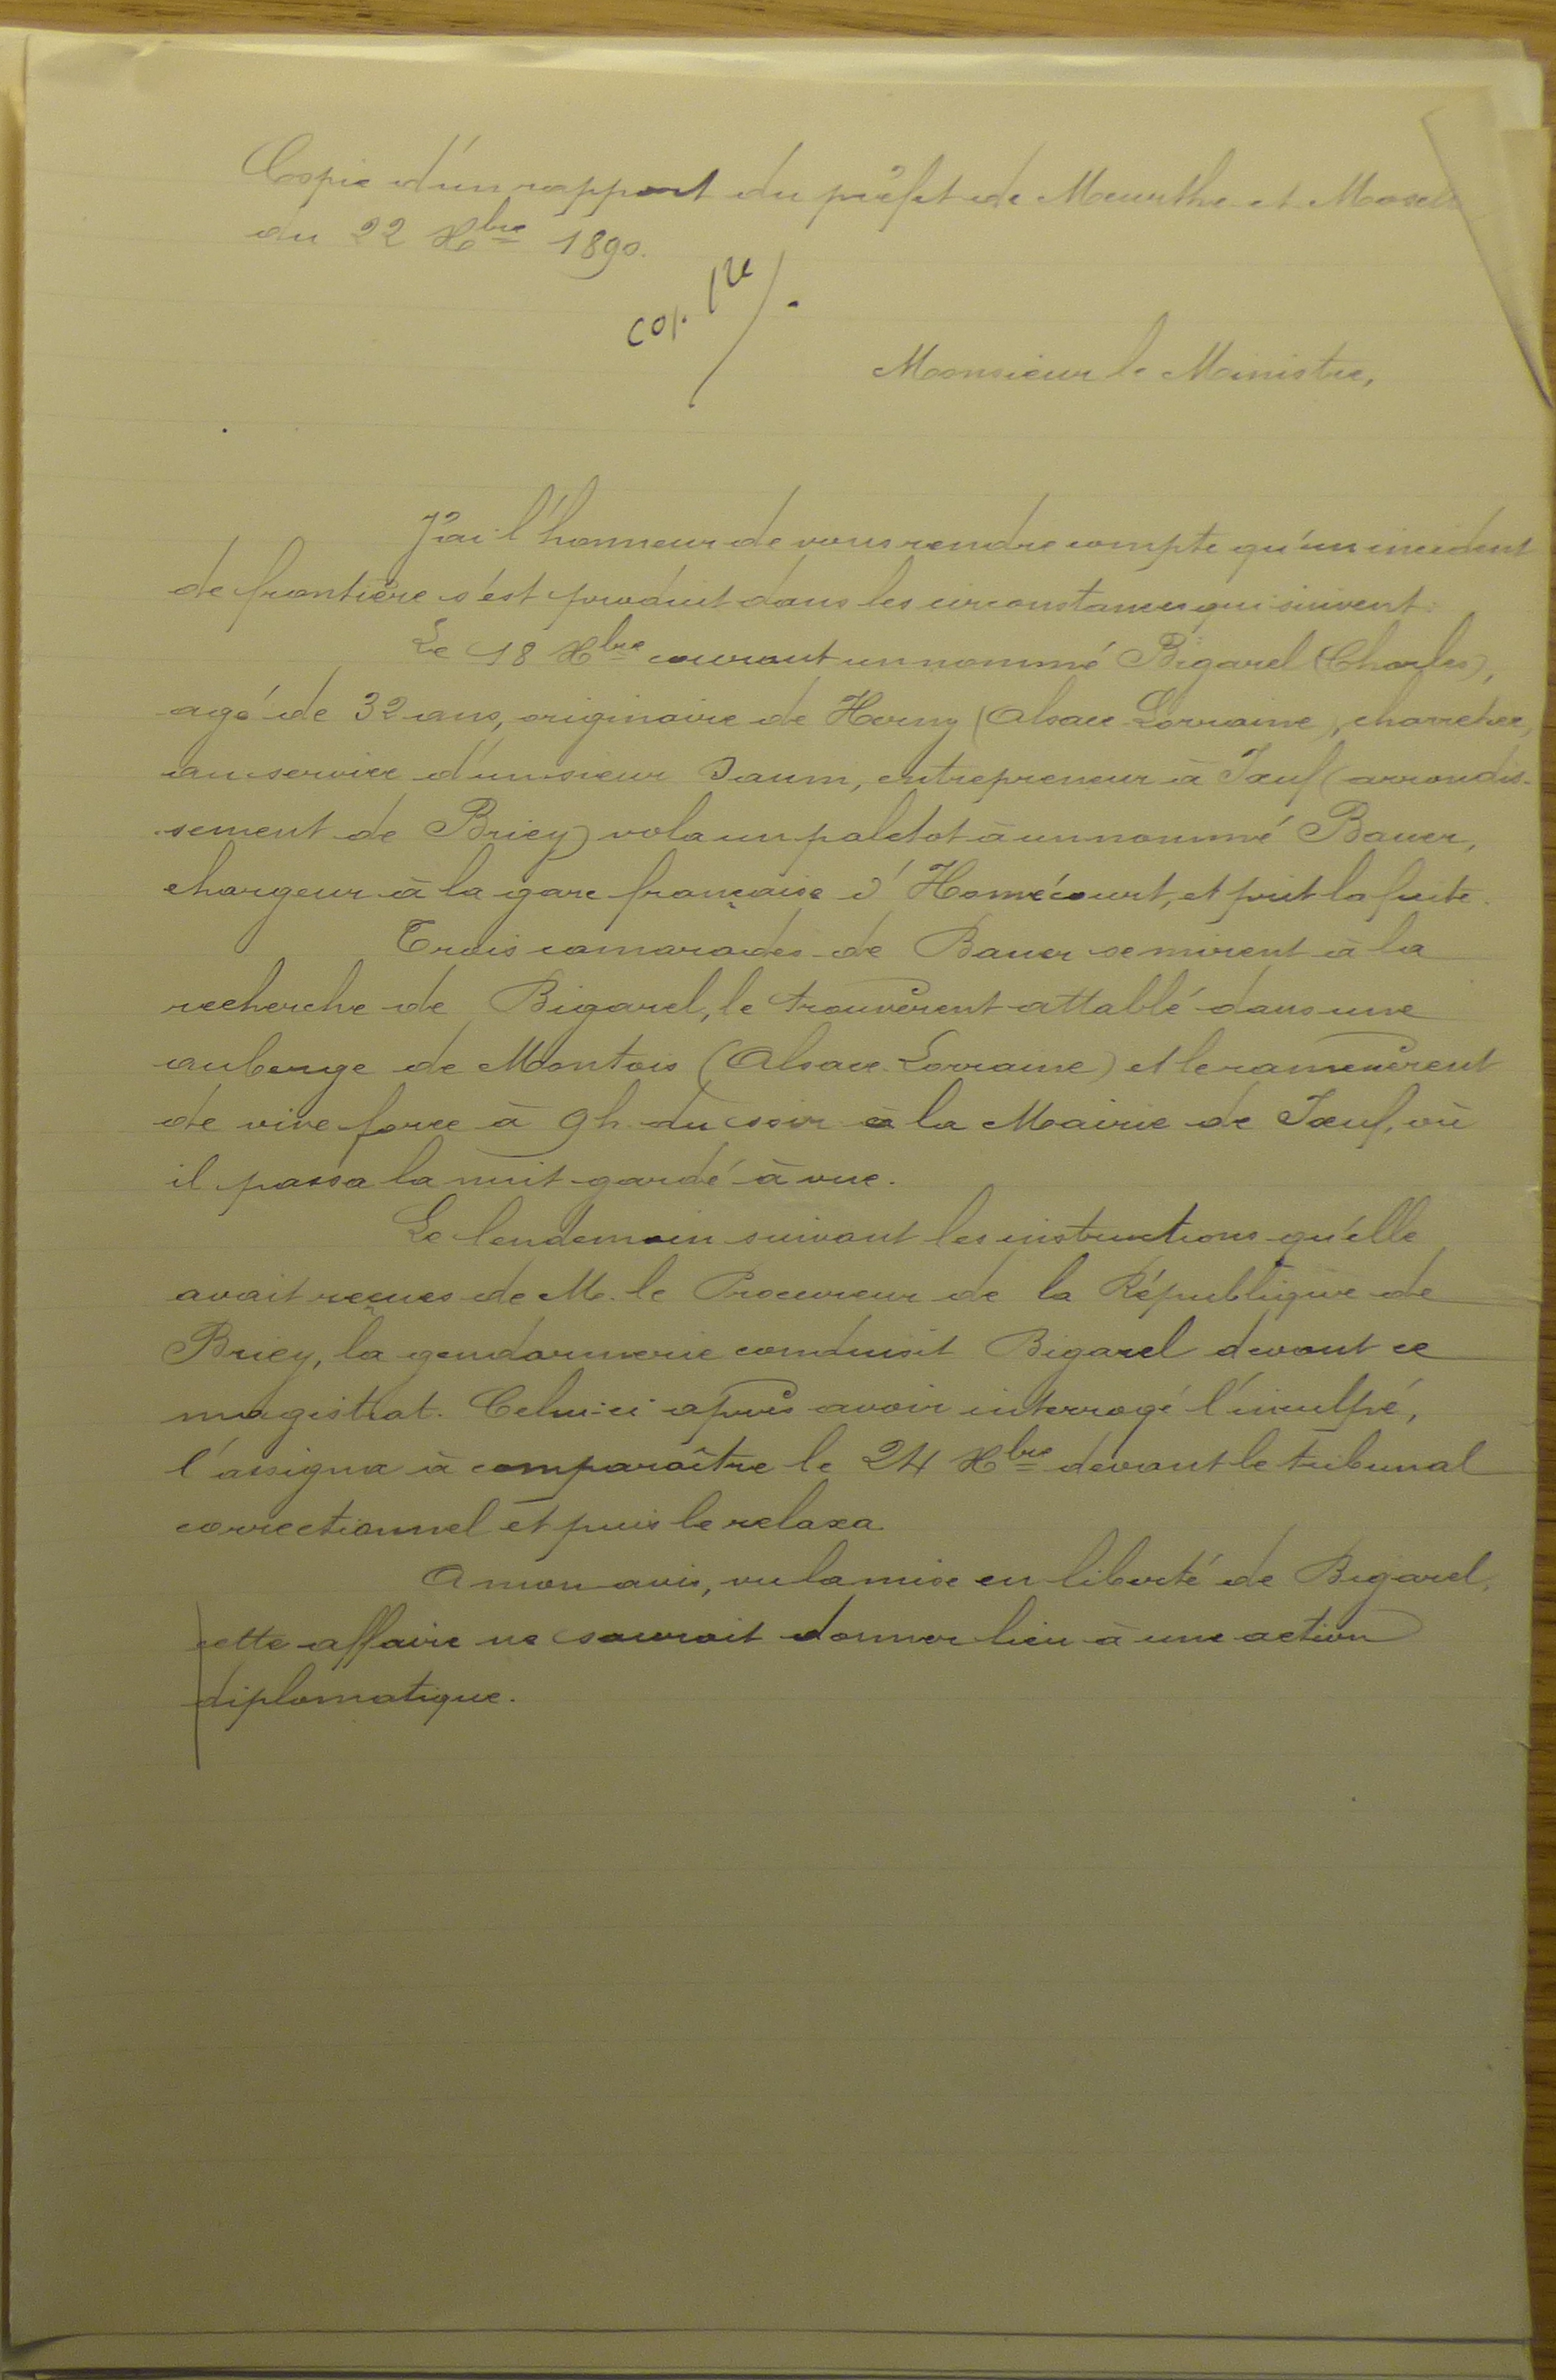 Copie d'un rapport du préfet de Meurthe et Moselle
du 22 Xbre 1890.
cop.
Monsieur le Ministre,
J'ai l'honneur de vous rendre compte qu'un incident
de frontière s'est produit dans les circonstances qui suivent:
Le 18 Xbre courant un nommé Bigarel (Charles),
agé de 32 ans, originaire de Herny (Alsace-Lorraine), charretier,
au service d'un sieur Daum, entrepreneur à Joeuf (arrondis-
sement de Briey) vola un paletot à un nommé Bauer,
chargeur à la gare française d'Homécourt, et prit la fuite.
Trois camarades de Bauer se mirent à la
recherche de Bigarel, le trouvèrent attablé dans une
auberge de Montois (Alsace-Lorraine) et le ramenèrent
de vive force à 9h. du soir à la Mairie de Joeuf, où
il passa la nuit gardé à vue.
Le lendemain suivant les instructions qu'elle
avait reçues de M. le Procureur de la République de
Briey, la gendarmerie conduisit Bigarel devant ce
magistrat. Celui-ci après avoir interrogé l'inculpé,
l'assigna à comparaître le 24 Xbre devant le tribunal
correctionnel et puis le relaxa
A mon avis, vu la mise en liberté de Bigarel,
cette affaire ne saurait donner lieu à une action
diplomatique.